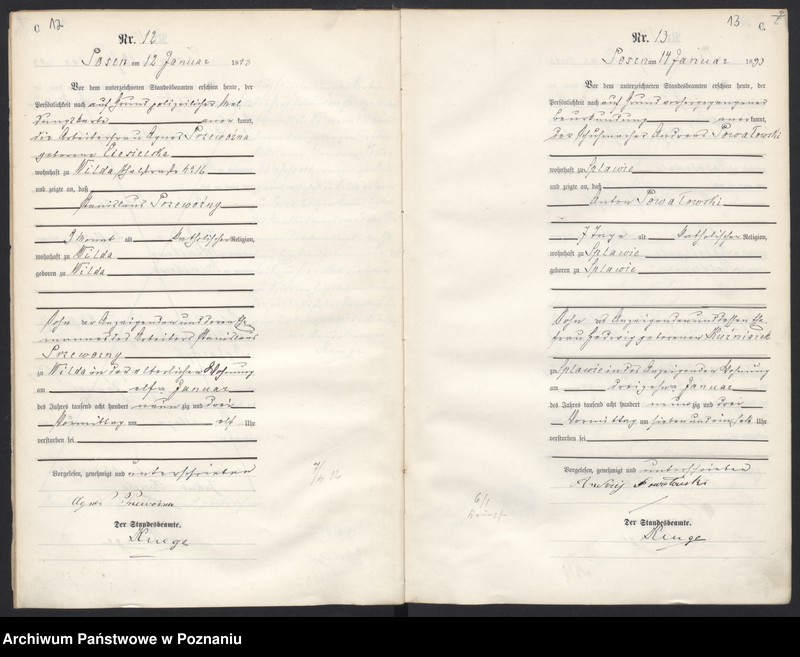 C 12
Nr. 12
Posen am 12 Januar 1893
Vor dem unterzeichneten Standesbeamten erschien heute, der
Persönlichkeit nach auf Grund polizeilicher Mel
dungskarte anerkannt,
die Arbeiterfrau Agnes Przewoźna
geborene
wohnhaft zu Wilda
und zeigte an, daß
Stanislaus Przewoźny
3 Monat alt katholischer Religion,
wohnhaft zu Wilda
geboren zu Wilda
Sohn der Anzeigenden und deren Ehe
mannes des Arbeiters Stanislaus
Przewoźny
zu Wilda in der elterlichen Wohnung
am elften Januar
des Jahres tausend acht hundert neunzig und drei
Vormittag um elf Uhr
verstorben sei
Vorgelesen, genehmigt und unterschrieben
Agnes Przewoźna
Der Standesbeamte.
13
C.
Nr. 13
Posen am 14 Januar 1893
Vor dem unterzeichneten Standesbeamten erschien heute, der
Persönlichkeit nach auf Grund vorhergegangener
Beurkundung anerkannt,
der Schuhmacher Andreas Powałowski
wohnhaft zu Splawie
und zeigte an, daß
Anton Powałowski
7 Tage alt katholischer Religion,
wohnhaft zu Splawie
geboren zu Splawie
Sohn des Anzeigenden und dessen Ehe
frau Hedwig geborenen Kuźniarek
zu Splawie in des Anzeigenden Wohnung
am dreizehnten Januar
des Jahres tausend acht hundert neunzig und drei
Vormittag um sieben und ein halb Uhr
verstorben sei
Vorgelesen, genehmigt und unterschrieben
Andrzej Powałowski
Der Standesbeamte.
Archiwum Państwowe w Poznaniu